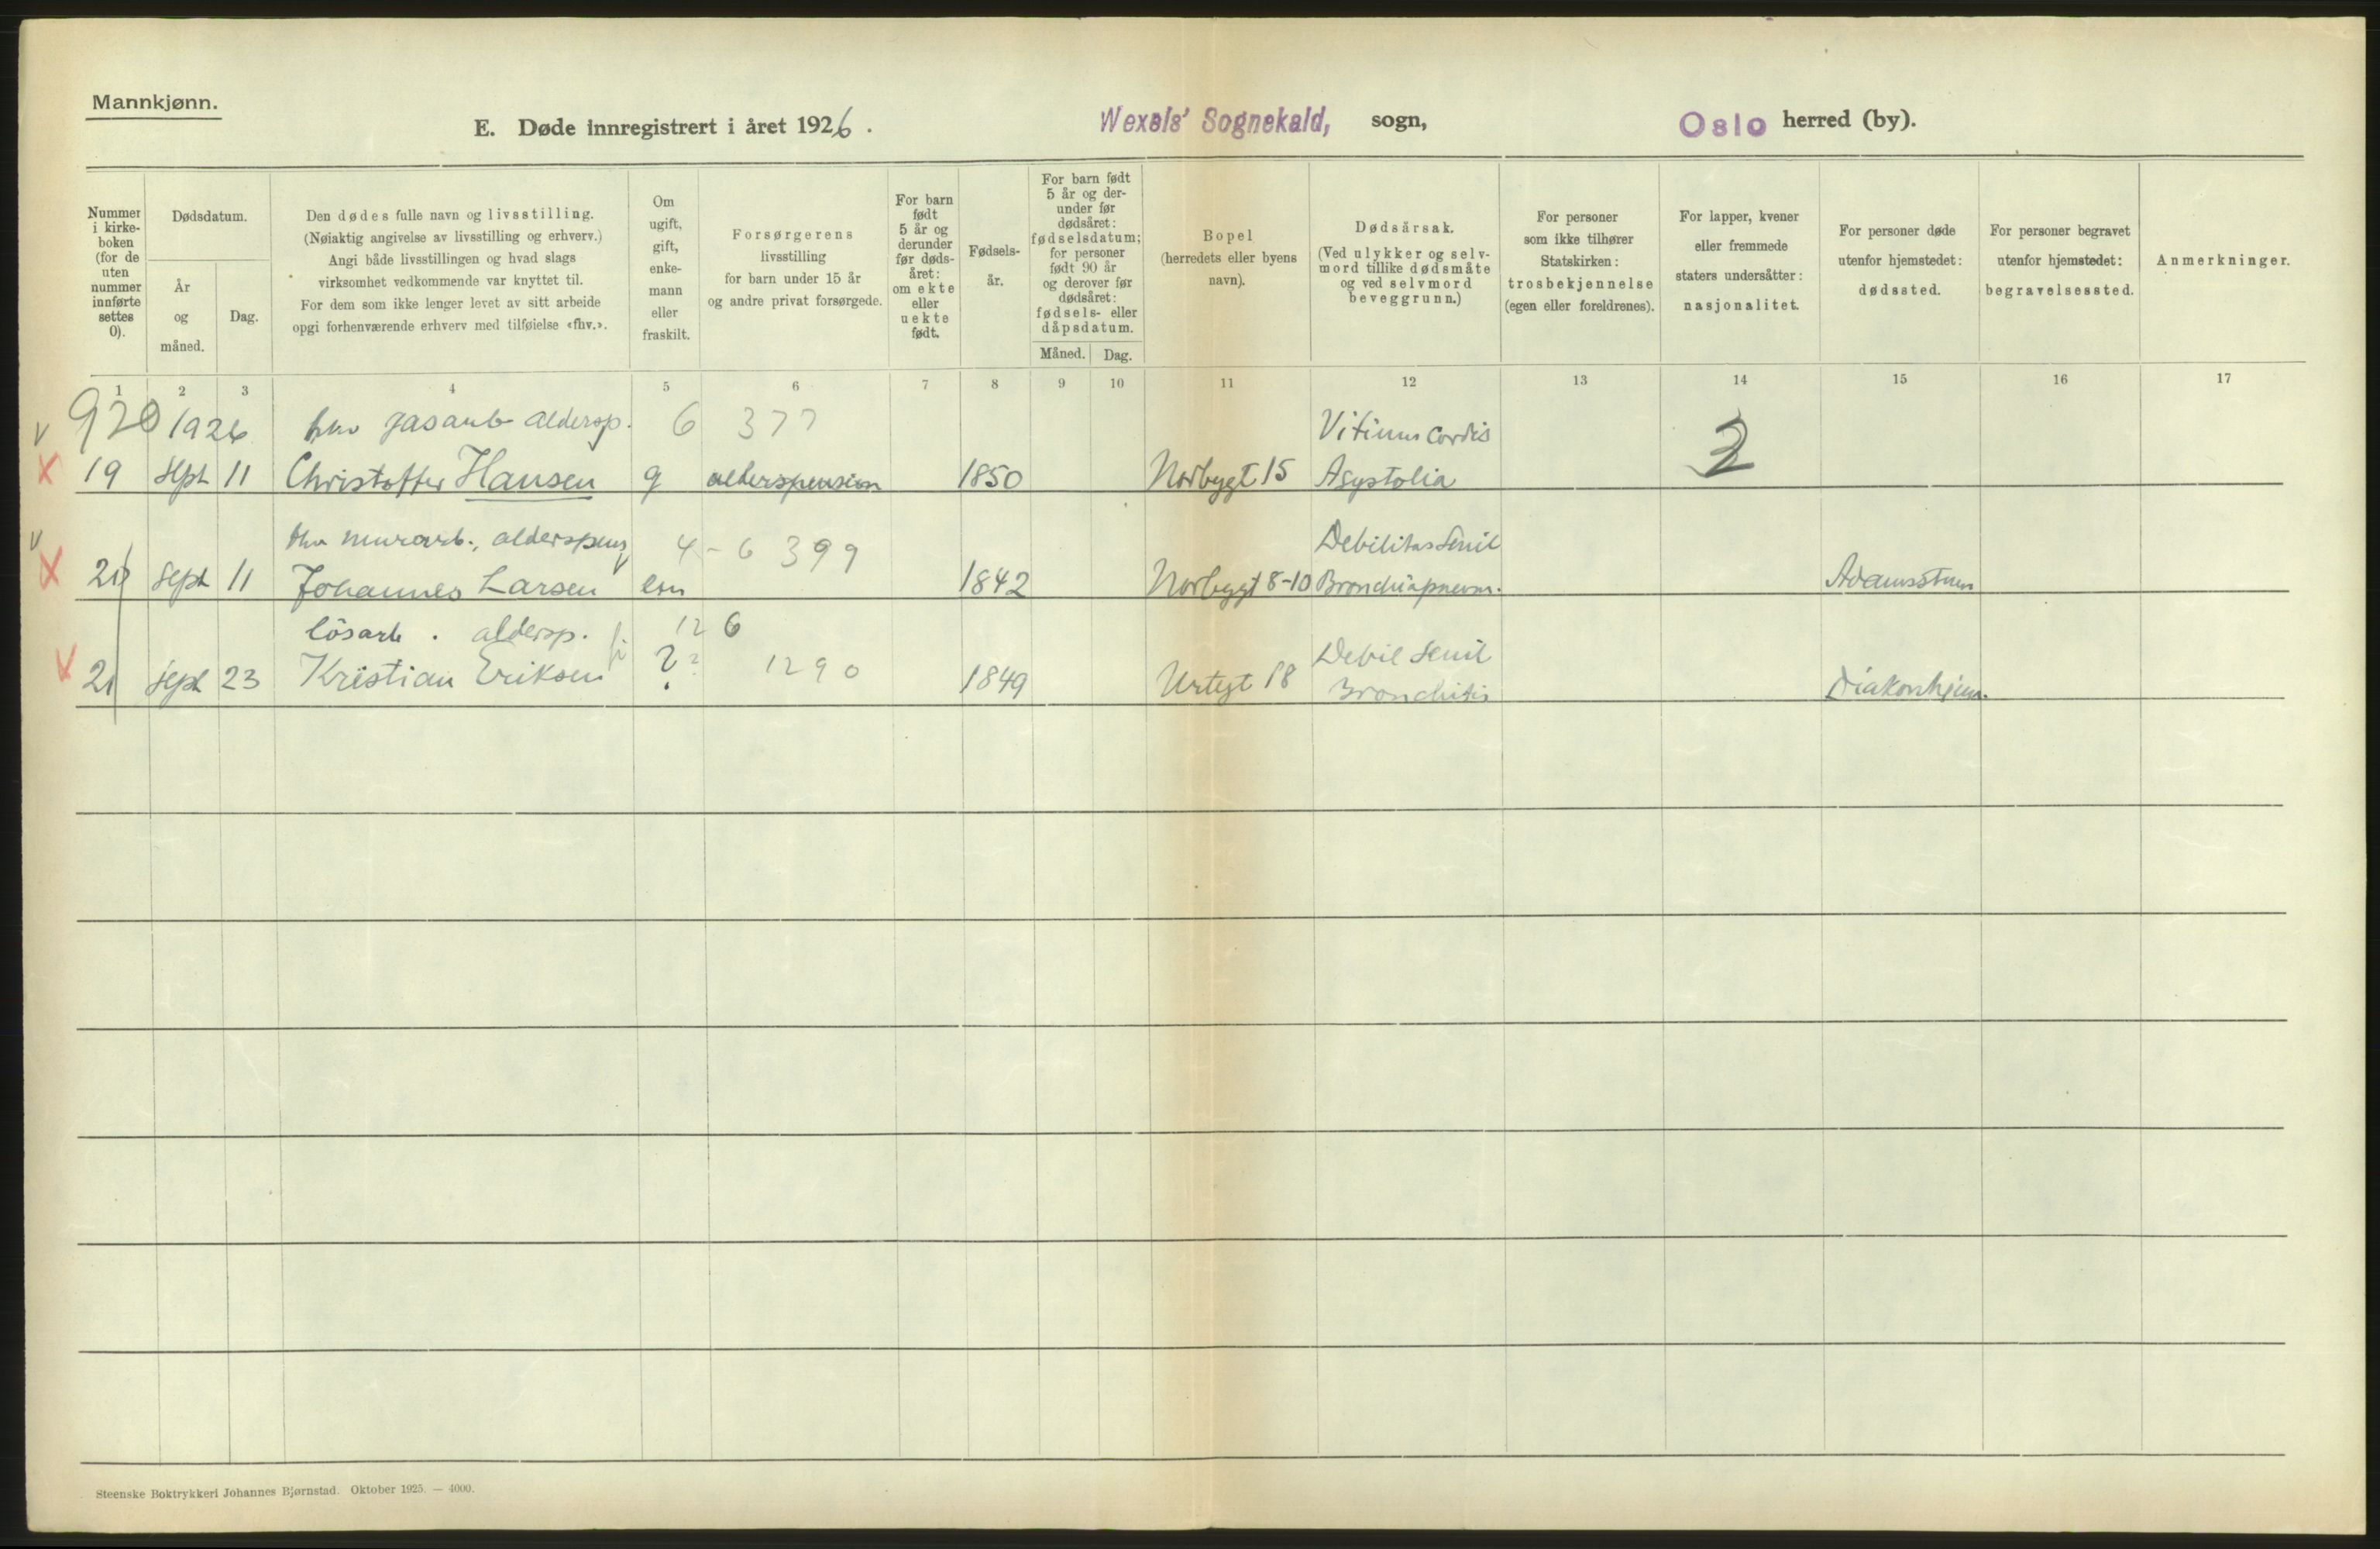 Mannkjønn.
E. Døde innregistrert i året 1926.
Wexels' Sognekald, sogn,
Oslo herred (by).
Nummer i kirke- boken (for de uten nummer innførte settes 0).
Dødsdatum.
År og måned.
Dag.
Den dødes fulle navn og livsstilling.
(Nøiaktig angivelse av livsstilling og erhverv.)
Angi både livsstillingen og hvad slags
virksomhet vedkommende var knyttet til.
For dem som ikke lenger levet av sitt arbeide
opgi forhenværende erhverv med tilføielse «fhv.».
Om ugift, gift, enke- mann eller fraskilt.
Forsørgerens
livsstilling
for barn under 15 år
og andre privat forsørgede.
For barn født 5 år og derunder før døds- året: om ekte eller uekte født.
Fødsels- år.
For barn født 5 år og der- under før dødsåret: fødselsdatum; for personer født 90 år og derover før dødsåret: fødsels- eller dåpsdatum.
Måned. Dag.
Bopel
(herredets eller byens
navn).
Dødsårsak.
(Ved ulykker og selv-
mord tillike dødsmåte
og ved selvmord
beveggrunn.)
For personer
som ikke tilhører
Statskirken:
trosbekjennelse
(egen eller foreldrenes).
For lapper, kvener
eller fremmede
staters undersåtter:
nasjonalitet.
For personer døde
utenfor hjemstedet:
dødssted.
For personer begravet
utenfor hjemstedet:
begravelsessted.
Anmerkninger.
1 2 3 4 5 6 7 8 9 10 11 12 13 14 15 16 17
920 1926 fhv gasarb aldersp. 6 377 Vitium Cordis 2
19 Sept 11 Christoffer Hansen g alderspension 1850 Norbygt 15 Asystolia
fhv murarb., alderspens 4-6 399 Debilitas Senil
20 Sept 11 Johannes Larsen em 1842 Norbygt 8-10 Bronchiapneum. Adamsstuen
lösarb. aldersp. 126
21 Sept 23 Kristian Eriksen ? ? 1290 1849 Urtegt 18 Debil Senil Diakonhjem.
Bronchitis
Steenske Boktrykkeri Johannes Bjørnstad. Oktober 1925. — 4000.